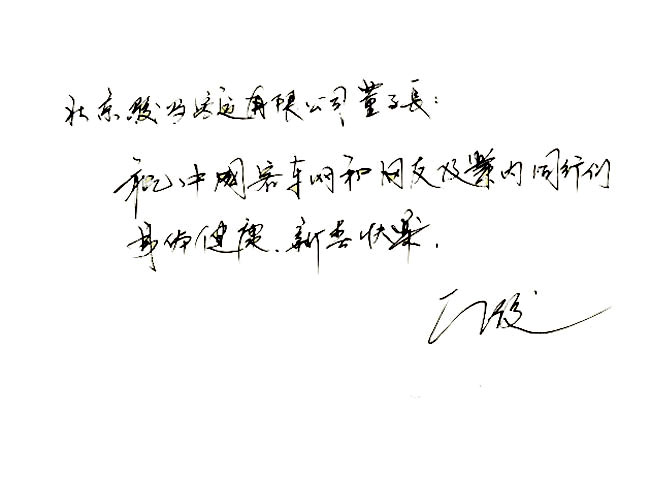 北京骏马客运有限公司董事长：
祝中国客车网和网友及业内同行们
身体健康、新春快乐。